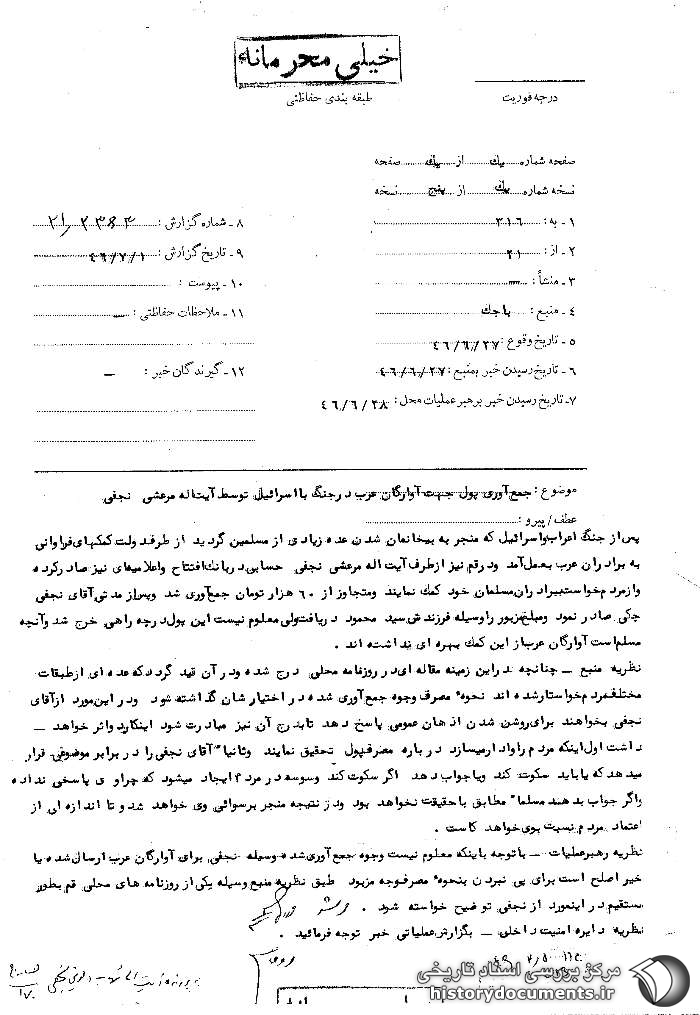 خیلی محرمانه
طبقه بندی حفاظتی
درجه فوریت
صفحه شماره یک از یک صفحه
نسخه شماره یک از پنج نسخه
۱ـ به: ۳۱۶
۲ـ از: ۲۱
۳ـ منشأ: ــ
۴ـ منبع: باجك
۵ـ تاریخ وقوع: ۴۶/۶/۲۷
۶ـ تاریخ رسیدن خبر بمنبع: ۴۶/۶/۲۷
۷ـ تاریخ رسیدن خبر برهبر عملیات محل: ۴۶/۶/۲۸
۸ـ شماره گزارش: ۲۱/۲۳۸۴
۹ـ تاریخ گزارش: ۴۶/۷/۱
۱۰ـ پیوست:
۱۱ـ ملاحظات حفاظتی: ــ
۱۲ـ گیرندگان خبر: ــ
موضوع: جمع آوری پول جهت آوارگان عرب در جنگ با اسرائیل توسط آیت اله مرعشی نجفی
عطف/پیرو:
پس از جنگ اعراب واسرائیل که منجر به بیخانمان شدن عده زیادی از مسلمین گردید از طرف دولت کمکهای فراوانی
به برادران عرب بعمل آمد ودرقم نیز از طرف آیت اله مرعشی نجفی حسابی در بانك افتتاح واعلامیه‌ای نیز صادر کرده
وازمردم خواست ببرادران مسلمان خود کمك نمایند ومتجاوز از ۶۰ هزار تومان جمع آوری شد وپس از مدتی آقای نجفی
چکی صادر نمود ومبلغ مزبور را وسیله فرزندش سید محمود دریافت ولی معلوم نیست این پول درچه راهی خرج شد وآنچه
مسلم است آوارگان عرب از این کمك بهره ای نداشته اند .
نظریه منبع ــ چنانچه در این زمینه مقاله ای در روزنامه محلی درج شده ودر آن قید گردد که عده ای از طبقات
مختلف مردم خواستار شده اند نحوه مصرف وجوه جمع آوری شده در اختیار شان گذاشته شود ودر این مورد از آقای
نجفی بخواهند برای روشن شدن اذهان عمومی پاسخ دهد تا بدرج آن نیز مبادرت شود اینکار دو اثر خواهد ــ
داشت اول اینکه مردم را وادار میسازد درباره مصرف پول تحقیق نمایند وثانیا" آقای نجفی را در برابر موضوعی قرار
میدهد که یا باید سکوت کند ویا جواب دهد اگر سکوت کند وسوسه در مردم ایجاد میشود که چرا وی پاسخی نداده
واگر جواب بدهد مسلما" مطابق با حقیقت نخواهد بود ودر نتیجه منجر برسوائی وی خواهد شد و تا اندازه ای از
اعتماد مردم نسبت بوی خواهد کاست .
نظریه رهبر عملیات ــ با توجه باینکه معلوم نیست وجوه جمع آوری شده وسیله نجفی برای آوارگان عرب ارسال شده یا
خیر اصلح است برای پی نبردن بنحوه مصرف وجه مزبور طبق نظریه منبع وسیله یکی از روزنامه های محلی قم بطور
مستقیم در اینمورد از نجفی توضیح خواسته شود .
نظریه دایره امنیت داخلی ــ بگزارش عملیاتی خبر توجه فرمائید .
مرکز بررسی اسناد تاریخی
historydocuments.ir